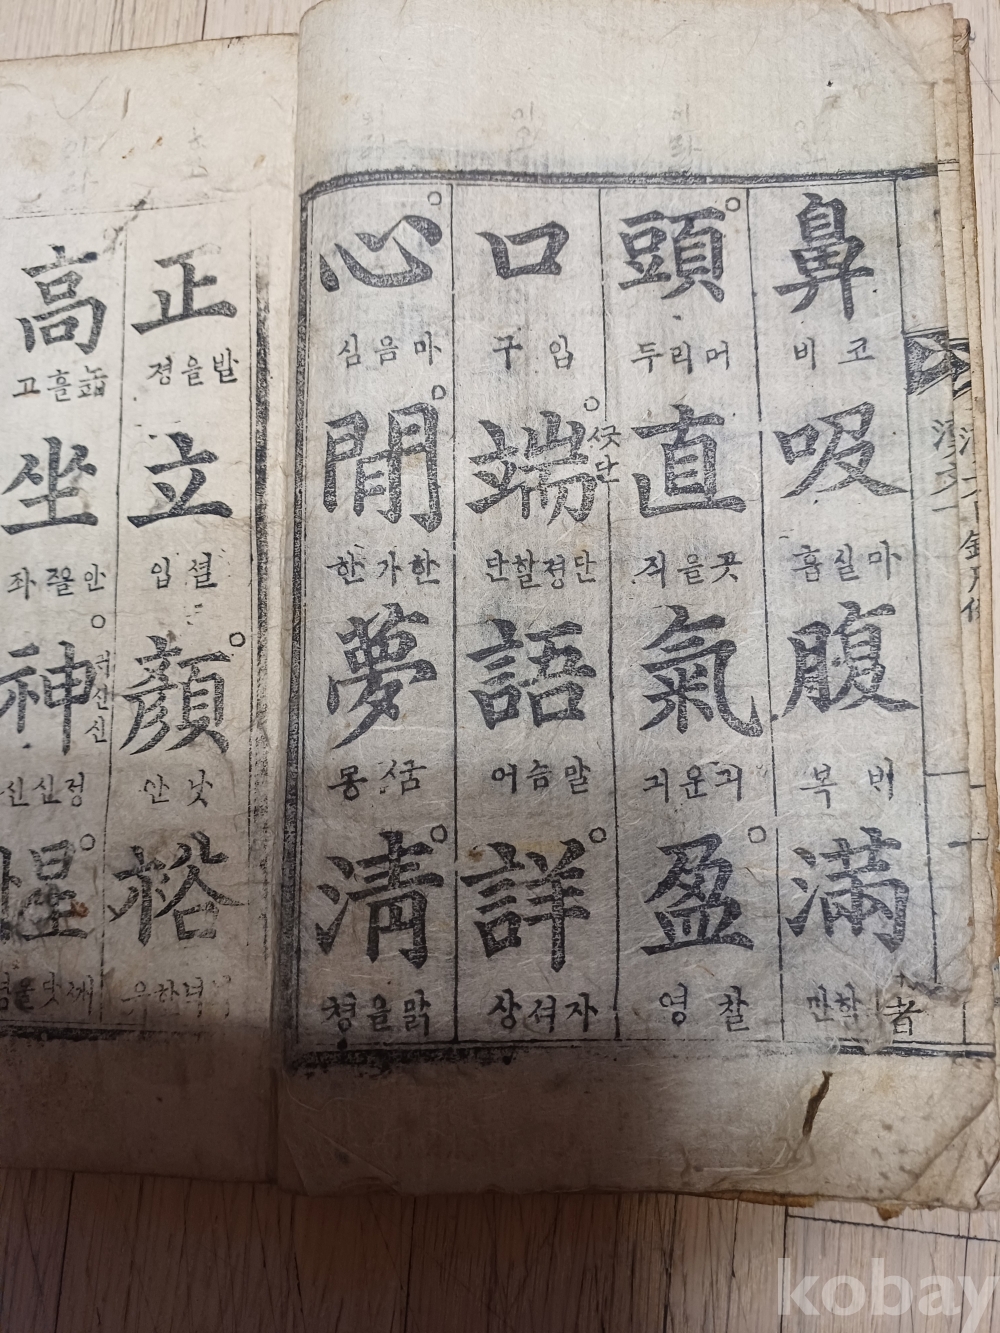 鼻
코 비
吸
마실
腹
복
滿
者
頭
머리 두
直
곳을
氣
긔운 긔
盈
찰 영
口
입 구
端
단졍할 단
ᄭᅳᆺ 단
語
말슴 어
詳
자셔 상
心
마음 심
閒
한가 한
夢
ᄭᅮᆷ 몽
淸
맑을 쳥
正
발을 졍
立
셜 입
顔
낫 안
高
놉흘 고
坐
안즐 좌
神
졍신 신
귀신 신
kobay